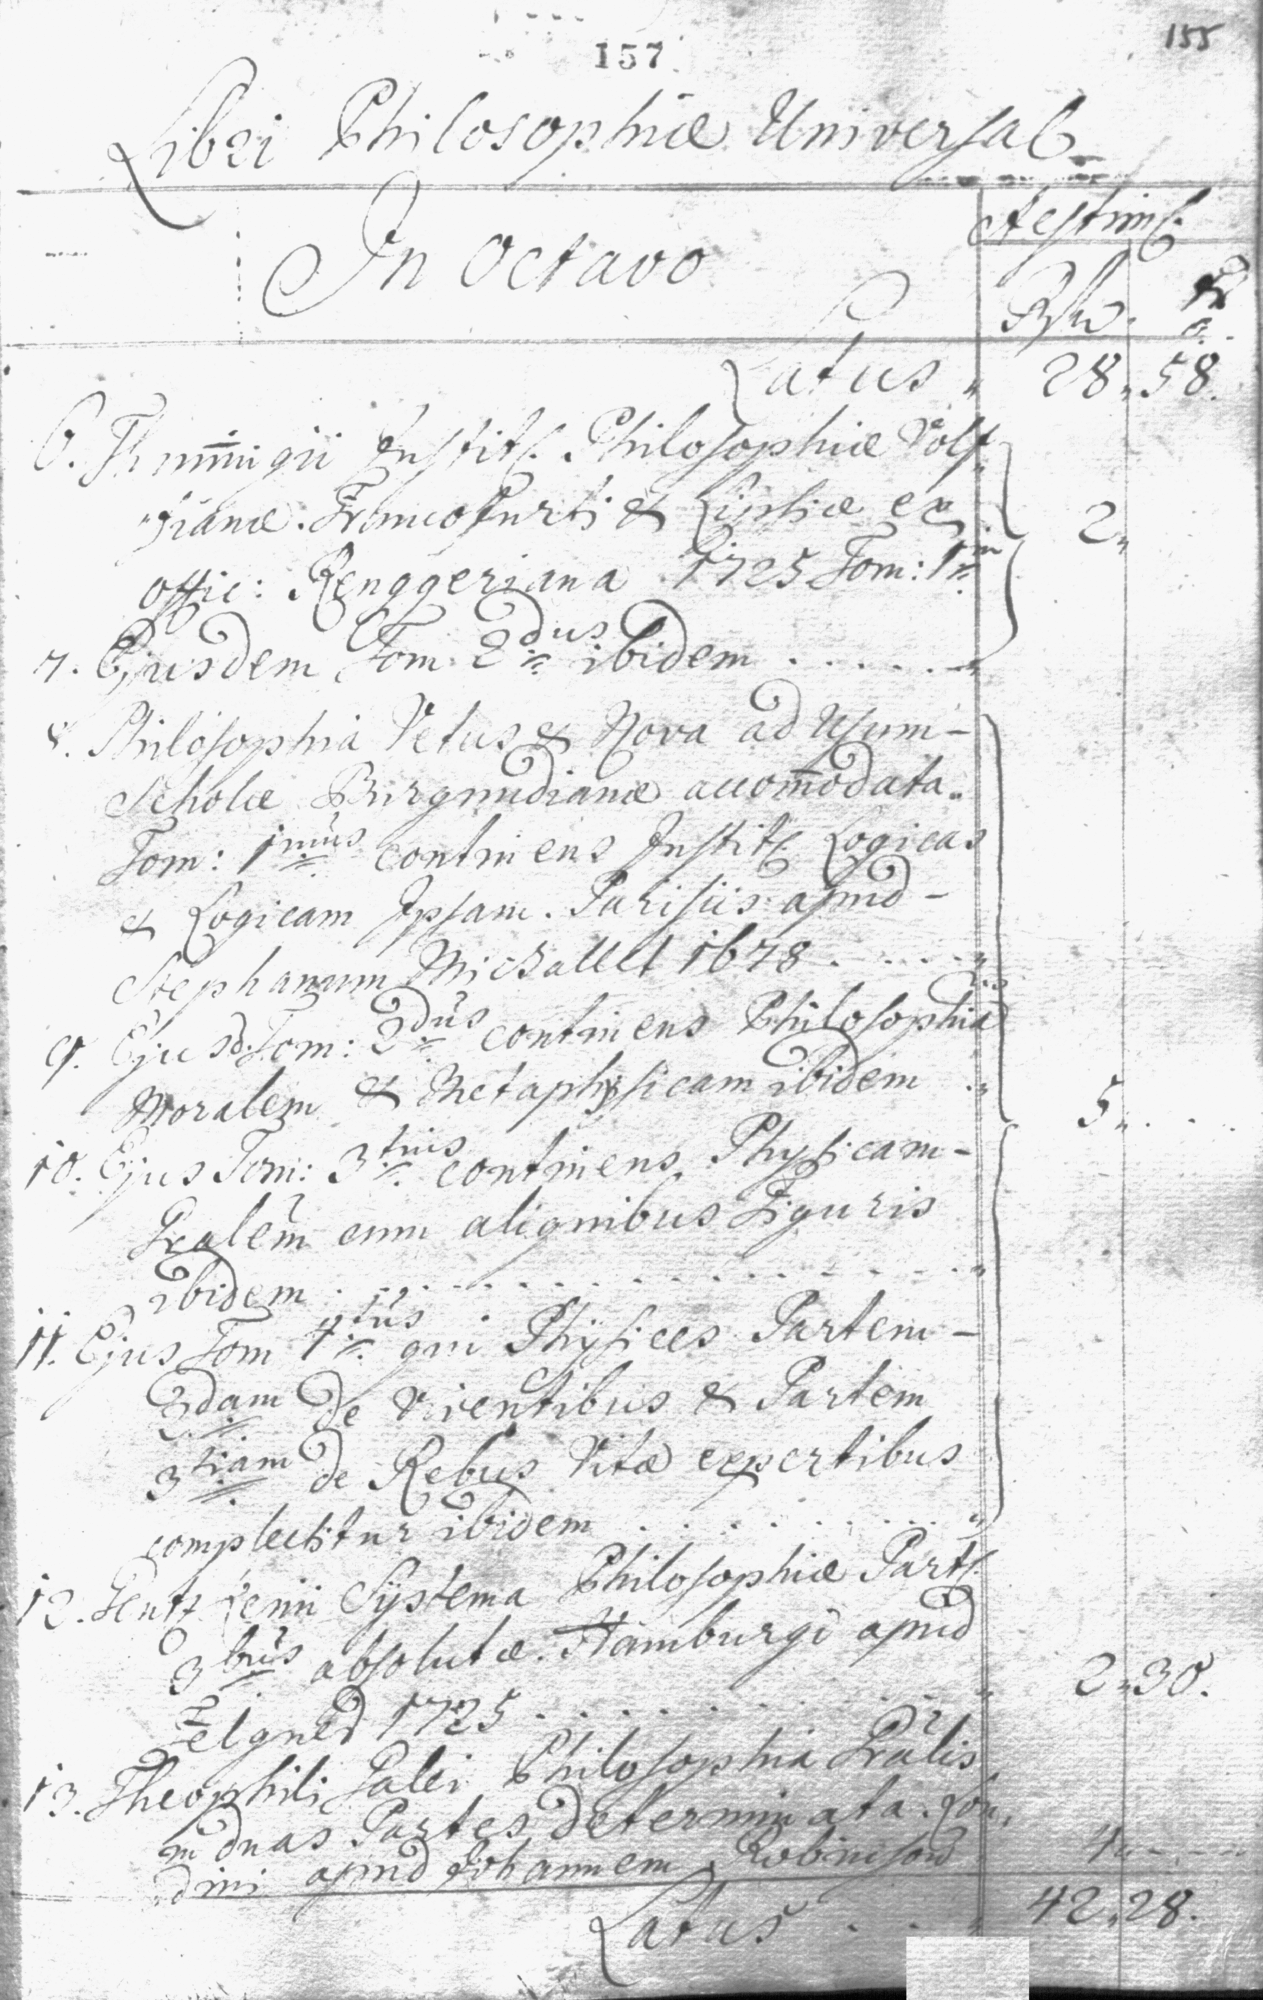 157
155
Libri Philosophiæ Universal
Aestim:
In Octavo
Latus „ 28 „ 58.
6. Thümmigii Instit: Philosophiæ Volf-
fianæ. Francofurti & Lipsiæ ex
offic: Renggeriana 1725 Tom: 1m 2 „
7. Ejusdem Tom 2dus ibidem . . . . . . „
8. Philosophia Vetus & Nova ad Usum -
Scholæ Burgundianæ accom̄odata.
Tom: 1mus continens Instit: Logicas
& Logicam Ipsam. Parisiis apud -
Stephanum Michallet 1678 . . . . „
9. Ejusd. Tom: 2dus continens Philosophia
Moralem & Metaphysicam ibidem . „ 5 „ . . .
10. Ejus Tom: 3tius continens Physicam -
Gralem cum aliquibus Figuris
ibidem . . . . . . . . . . . . „
11. Ejus Tom 4tus qui Physices Partem -
2dam de Viventibus & Partem
3tiam de Rebus Vitæ expertibus
complectitur ibidem . . . . . . . . „
12. Systema Philosophiæ Part:
3bus absolutæ. Hamburgi apud
Felgner 1725 . . . . . . . . „ 2 „ 30.
13. Theophili Galei Philosophia Gralis
in duas Partes determinata. Lon,
dini apud Johannem Robinson 4 „ - . -
Latus . . „ 42 „ 28.